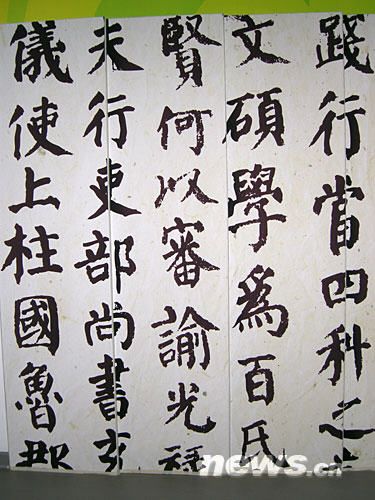 踐行當四科之
文碩學爲百氏
賢何以審諭光
夫行吏部尚書充
儀使上柱國魯郡
news.cn